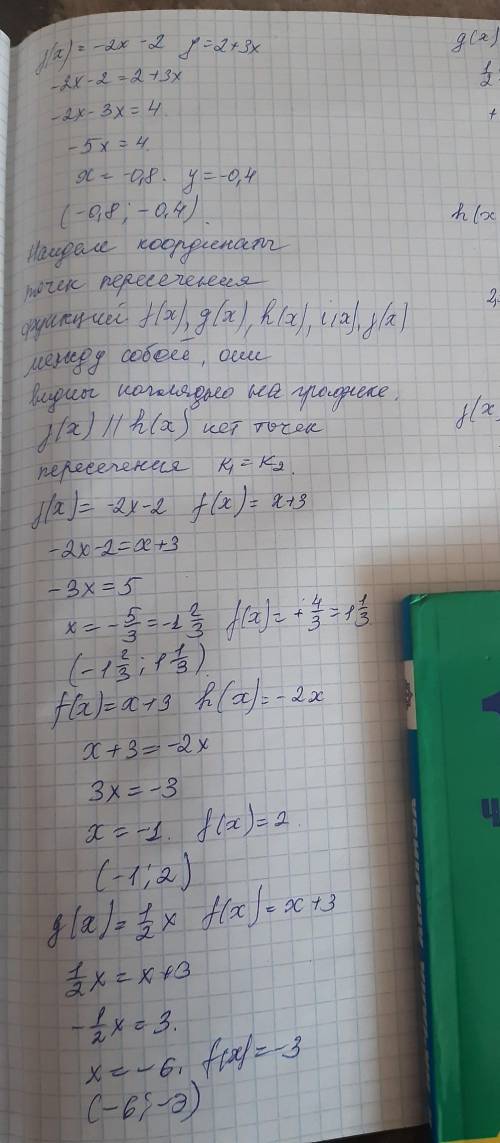 j(x) = -2x - 2   y = 2 + 3x
-2x - 2 = 2 + 3x
-2x - 3x = 4.
-5x = 4.
x = -0,8.   y = -0,4
(-0,8 ; -0,4).
Найдём координаты
точек пересечения
функций f(x), g(x), h(x), i(x), j(x)
между собой, они
видны наглядно на графике.
j(x) // h(x) нет точек
пересечения   K₁ = K₂.
j(x) = -2x - 2   f(x) = x + 3
-2x - 2 = x + 3
-3x = 5
x = -5/3 = -1 2/3   f(x) = + 4/3 = 1 1/3
(-1 2/3 ; 1 1/3).
f(x) = x + 3   h(x) = -2x
x + 3 = -2x
3x = -3
x = -1.   f(x) = 2.
(-1 ; 2)
g(x) = 1/2 x   f(x) = x + 3
1/2 x = x + 3
-1/2 x = 3.
x = -6.   f(x) = -3
(-6 ; -3)
g(x)
1/2
+
h(x
2,
j(x